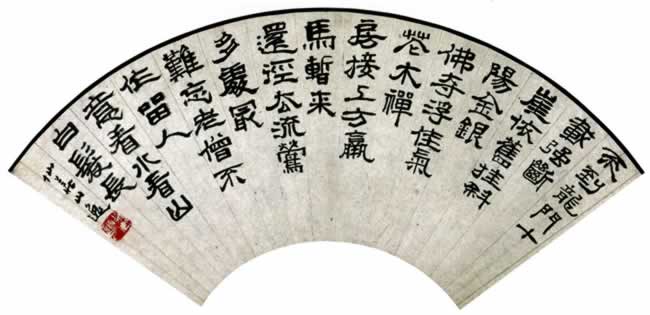 不到龍門十
載强斷
崖依舊挂斜
陽金銀
佛寺浮佳氣
花木禪
房接上方羸
馬暫来
還涇去流鶯
多處冣
難忘老僧不
住留人
意看水看山
白髮長